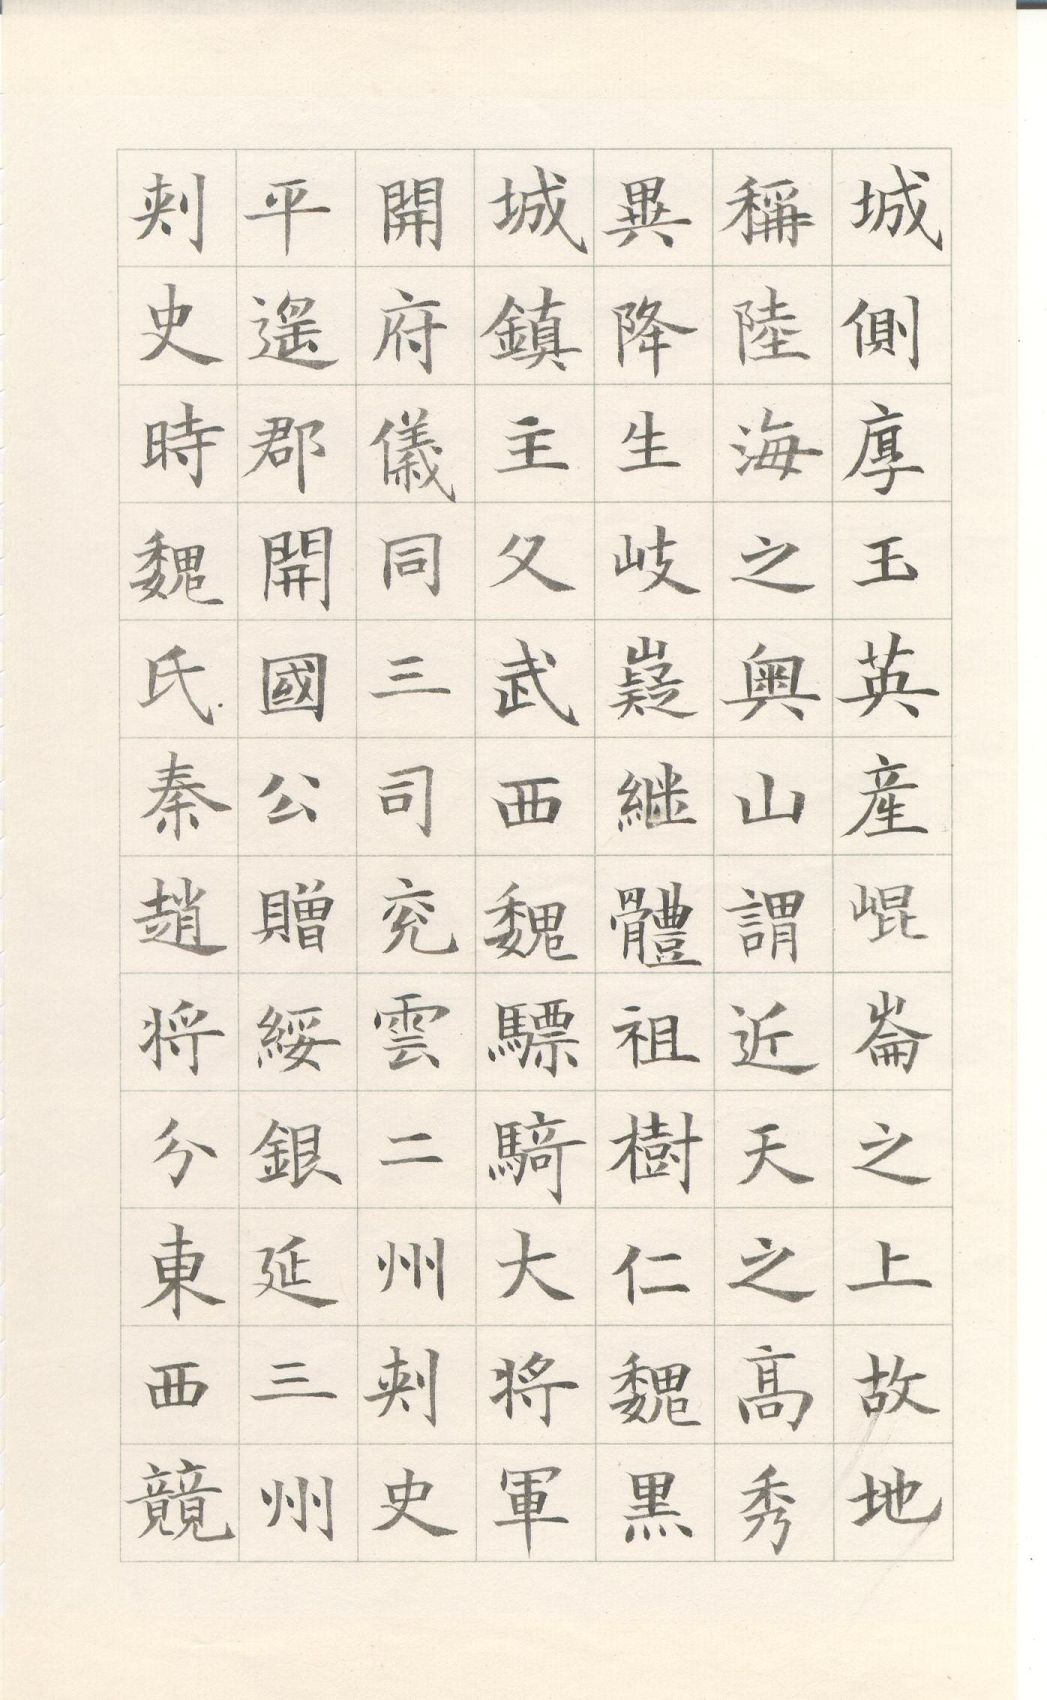 城側厚玉英產崐崙之上故地
稱陸海之奧山謂近天之高秀
異降生岐嶷継體祖樹仁魏黑
城鎮主父武西魏驃騎大将軍
開府儀同三司兖雲二州刺史
平遥郡開國公贈綏銀延三州
刺史時魏氏秦趙将分東西競